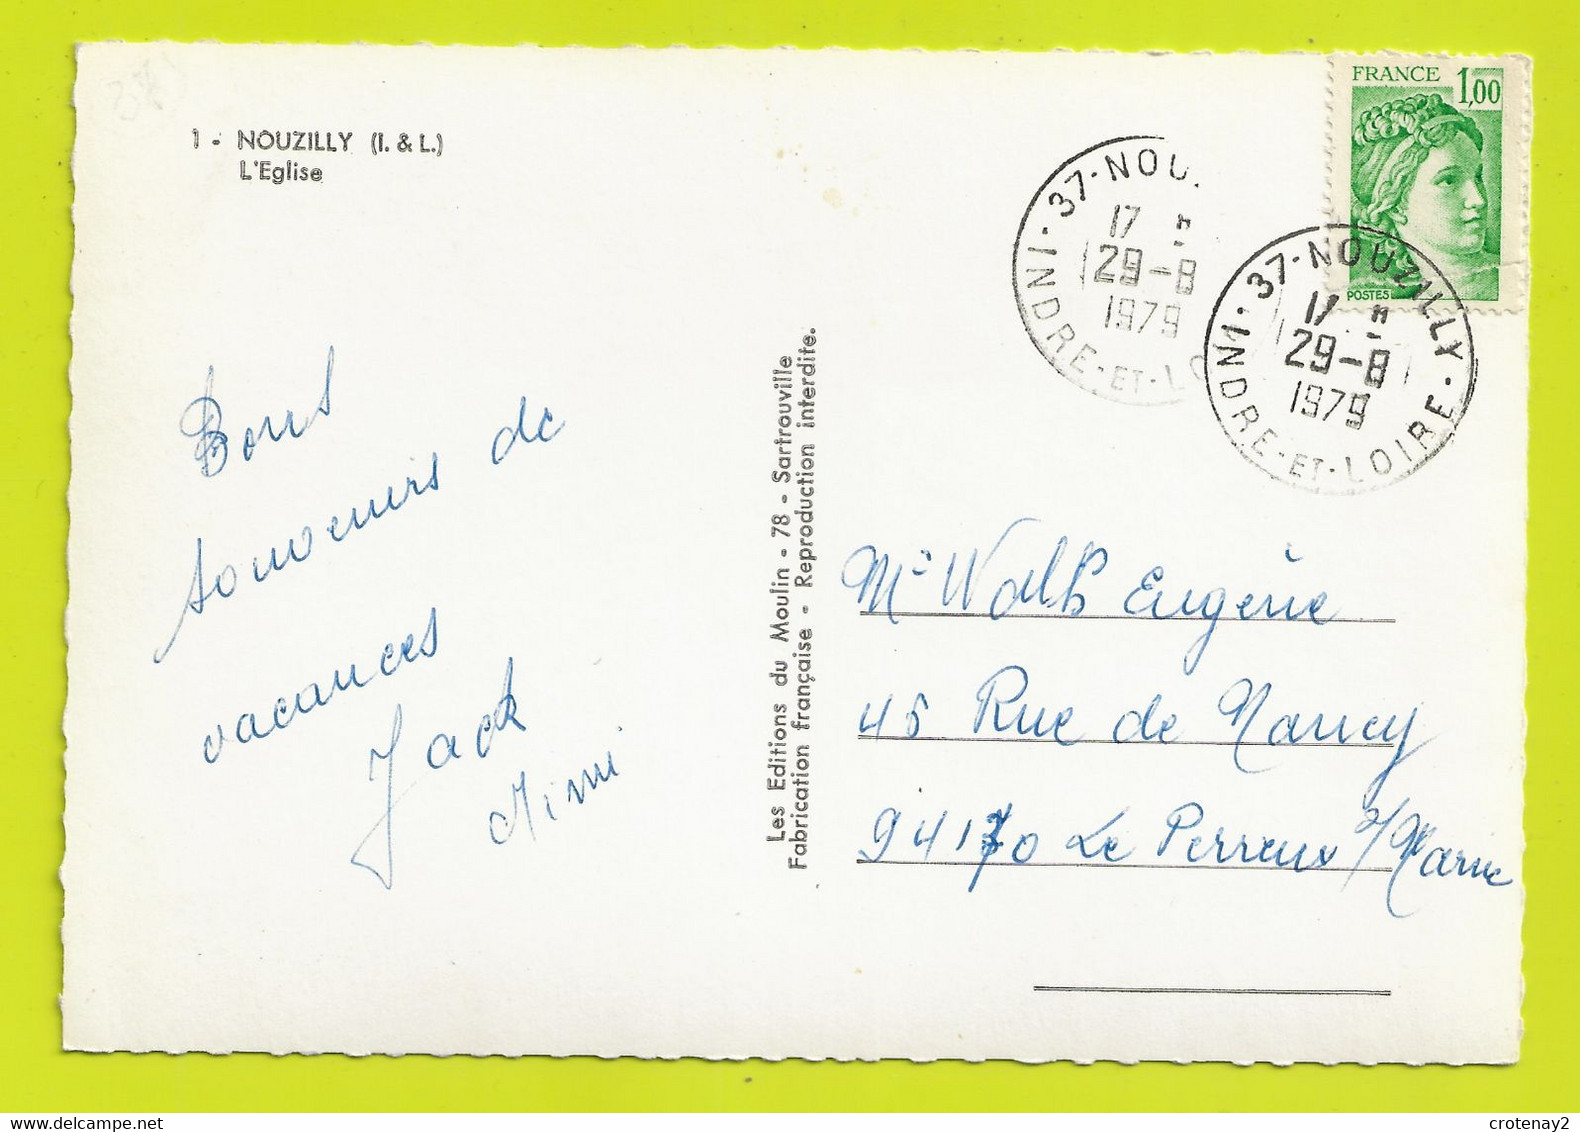 1 - NOUZILLY (I. & L.)
L'Eglise
Bons
souvenirs de
vacances
Jack
Mimi
Les Editions du Moulin - 78 - Sartrouville
Fabrication française - Reproduction interdite.
FRANCE 1,00
POSTES
37 - NOU
17 H
29-8
1979
INDRE - ET - LO
37 - NOUZILLY
17 H
29-8
1979
INDRE - ET - LOIRE
Eugénie
45 Rue de Nancy
94170 Le Perreux s/Marne
crotenay2